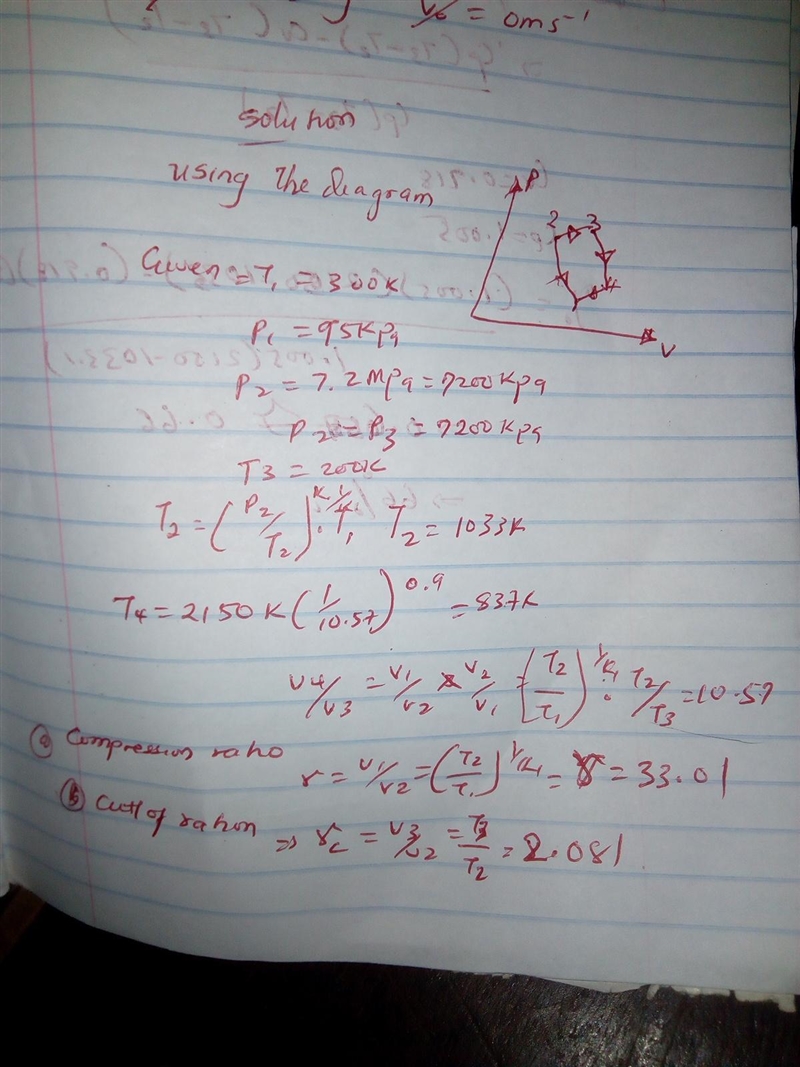 = 0ms⁻¹
solution
using The diagram
P
2 3
4
1
V
Given = T₁ = 300K
P₁ = 95Kpa
P₂ = 7.2Mpa = 7200Kpa
P₂ = P₃ = 7200Kpa
T3 = 200K
T₂ = (P₂/T₂) . T₁ T₂ = 1033K
T₄ = 2150K (1/10.57)^0.9 = 837K
V4/V3 = V1/V2 × V2/V1 = (T2/T1)^1/K-1 . T2/T3 = 10.57
(a) Compression ratio
r = V1/V2 = (T2/T1)^1/K-1 = 33.01
(b) Cutt of ration
⇒ r_c = V3/V2 = T3/T2 = 2.081